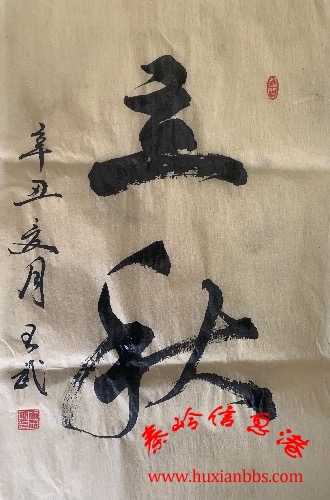 立秋
辛丑夏月 王武
秦岭信息港
www.huxianbbs.com